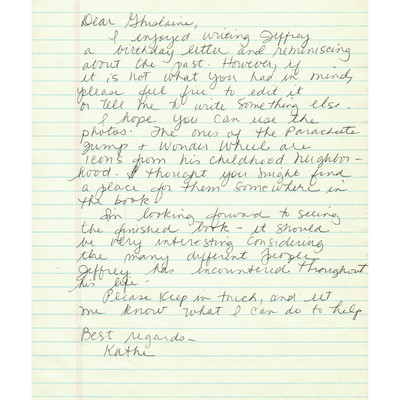 Dear Ghislaine,
I enjoyed writing Jeffrey
a birthday letter and reminiscing
about the past. However, if
it is not what you had in mind,
please feel free to edit it
or tell me to write something else.
I hope you can use the
photos. The ones of the Parachute
Jump + Wonder Wheel are
icons from his childhood neighbor-
hood. I thought you might find
a place for them somewhere in
the book.
Im looking forward to seeing
the finished book - it should
be very interesting considering
the many different people
Jeffrey has encountered throughout
his life.
Please keep in touch, and let
me know what I can do to help
Best regards -
Kathi